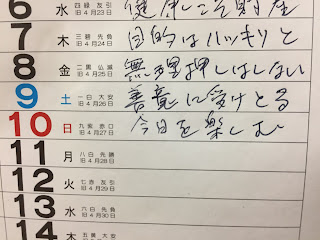 6 水 四緑 友引 健康こそ財産
旧4月23日
7 木 三碧 先負 目的はハッキリと
旧4月24日
8 金 二黒 仏滅 無理押しはしない
旧4月25日
9 土 一白 大安 善意に受けとる
旧4月26日
10 日 九紫 赤口 今日を楽しむ
旧4月27日
11 月 八白 先勝
旧4月28日
12 火 七赤 友引
旧4月29日
13 水 六白 先負
旧4月30日
14 木 五黄 大安